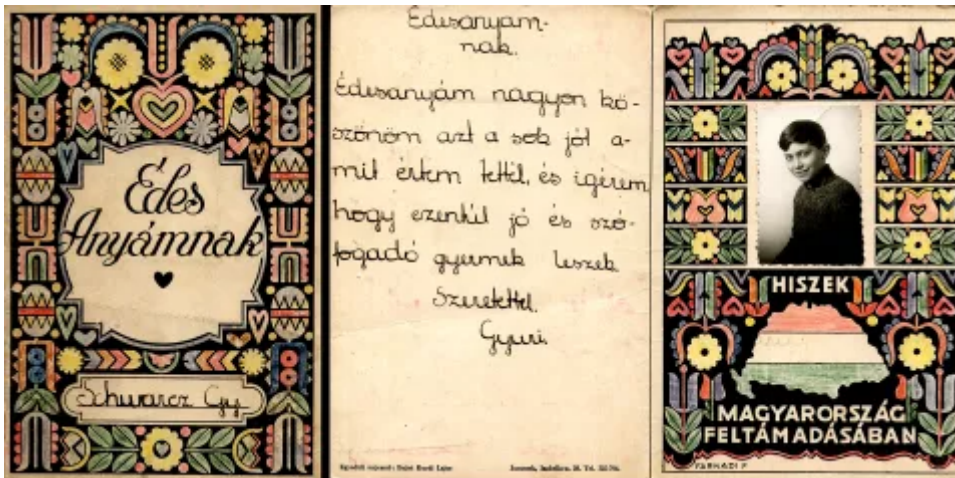 Édes
Anyámnak
Schwarcz Gy.
Édesanyám-
nak.
Édesanyám nagyon kö-
szönöm azt a sok jót a-
mit értem tettél, és igérem
hogy ezentúl jó és szó-
fogadó gyermek leszek
Szeretettel.
Gyuri.
HISZEK
MAGYARORSZÁG
FELTÁMADÁSÁBAN